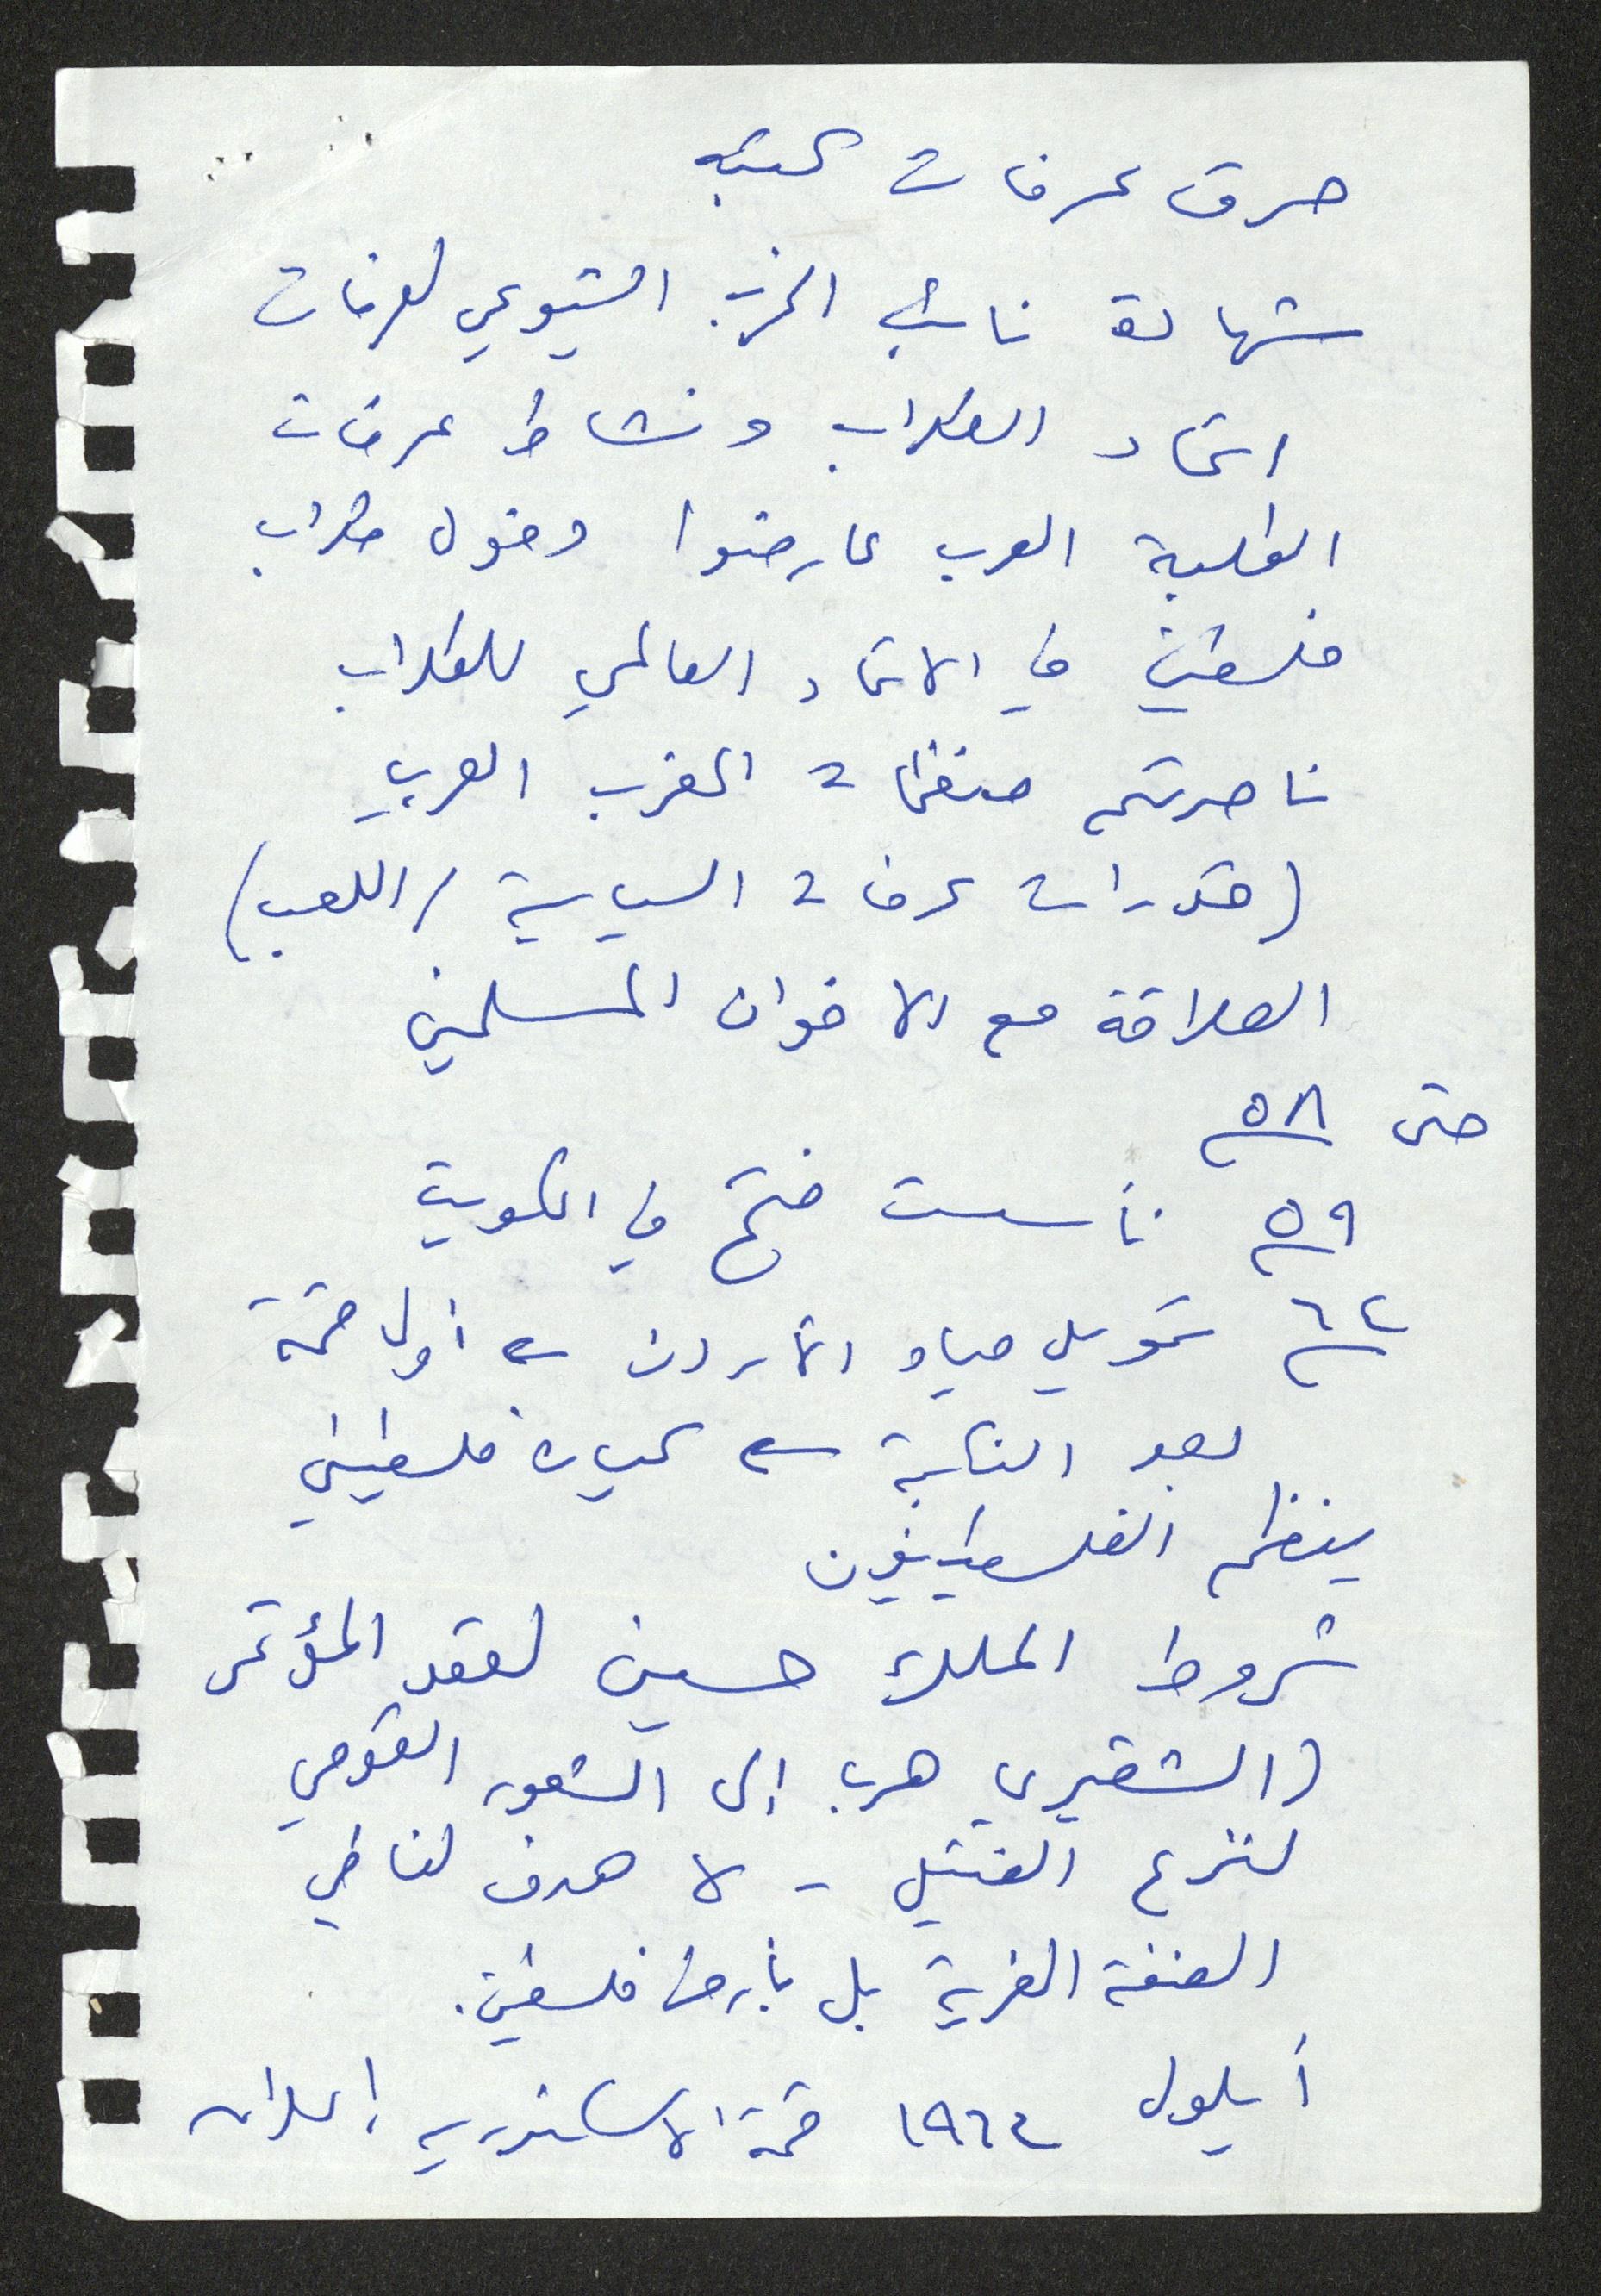 حرق عرفات لكتبه
شهادة نائب الحزب الشيوعي لعرفات
اتحاد الطلاب ونشاط عرفات
الطلبة العرب عارضوا دخول طلاب
فلسطين في الاتحاد العالمي للطلاب
ناصرتهم منظمات المغرب العربي
(قدرات عرفات السياسية / اللعب)
العلاقة مع الاخوان المسلمين
حتى ٥٨
٥٩ تأسست فتح في الكويت
٦٤ تحويل مياه الأردن أول قمة
بعد النكبة كيان فلسطيني
ينظم الفلسطينيون
شروط الملك حسين لعقد المؤتمر
(الشقيري هرب إلى الشعور القومي
لنزع الفتيل - لا هدف لنا في
الضفة الغربية بل بأرض فلسطين.
أيلول ١٩٦٤ قمة الاسكندرية إعلان